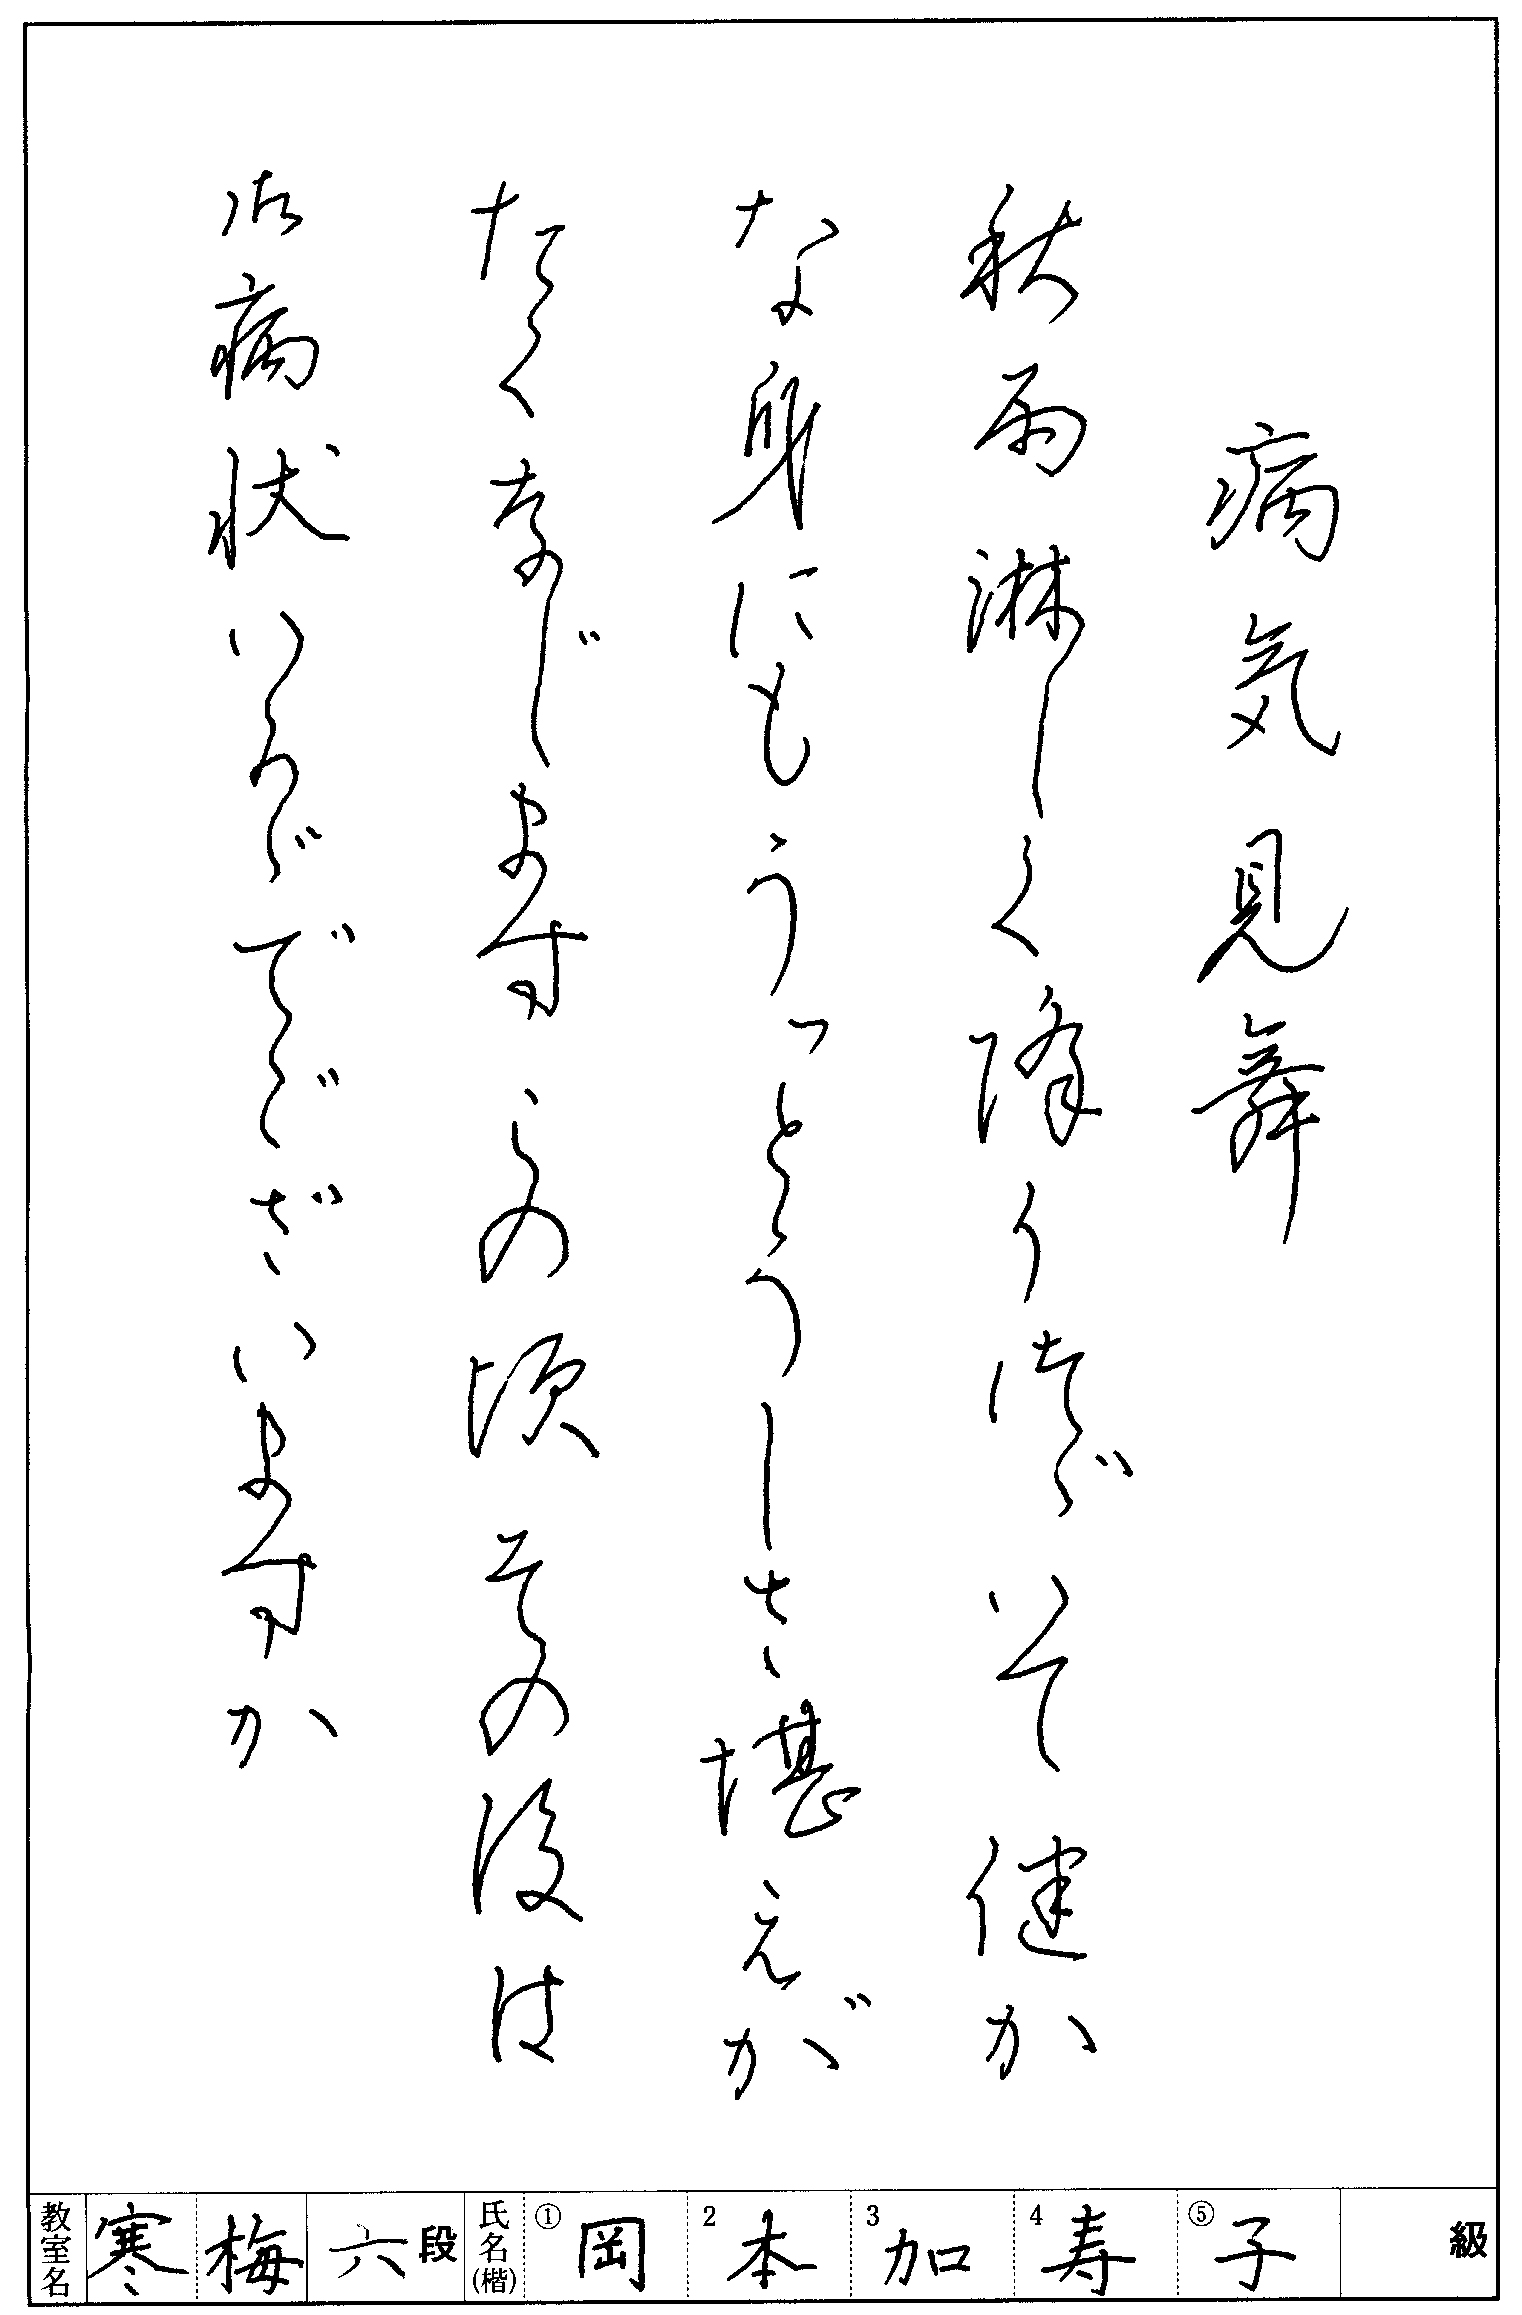 病気見舞
秋雨淋しく降りつづいて健か
な身にもうっとうしさ堪えが
たくなじますこの頃その後は
御病状いかがでございますか
教室名 寒梅 六段 氏名(楷) ①岡 2本 3加 4寿 ⑤子 級